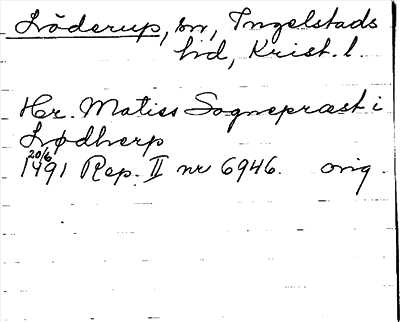 Löderup, sn, Ingelstads
hd, Krist. l.
Hr. Matiss Sognepræst i
Lødherp
20/6
1491 Rep. II nr 6946. orig.